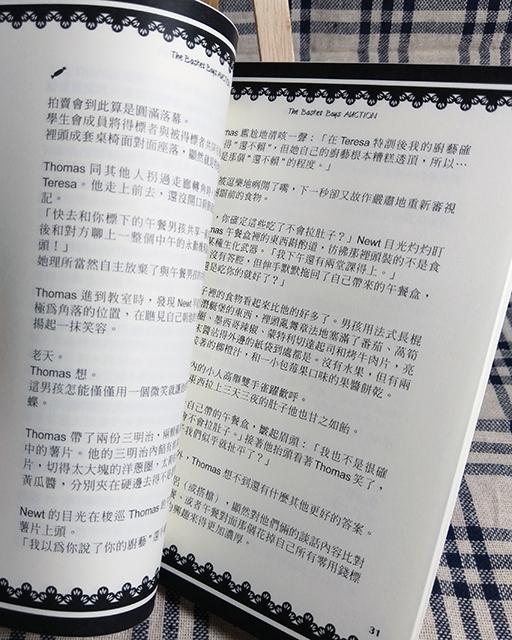 The Basket Boys AUCTION
拍賣會到此算是圓滿落幕。
學生會成員將得標者與被得標者共同
裡頭成套桌椅面對面座落,顯然就是
Thomas 同其他人拐過走廊轉角時
Teresa。他走上前去,還沒開口
記。
「快去和你標下的午餐男孩共享
後和對方聊上一整個中午的永動
頭!」
她理所當然自主放棄了與午餐男孩
Thomas 進到教室時,發現 Newt
極為角落的位置,在聽見自己
揚起一抹笑容。
老天。
Thomas 想。
這男孩怎能僅僅用一個微笑就讓
蝶。
Thomas 帶了兩份三明治,兩顆
中的薯片。他的三明治內餡有
片,切得太大塊的洋蔥圈,太
黃瓜醬,分別夾在硬邊去得不
Newt 的目光在梭巡 Thomas 的
薯片上頭。
「我以為你說了你的廚藝“還
The Basket Boys AUCTION
mas 尷尬地清咳一聲:「在 Teresa 特訓後我的廚藝確
得“還不賴”,但她自己的廚藝根本糟糕透頂,所以⋯
是那個“還不賴”的程度。」
被逗樂地咧開了嘴,下一秒卻又故作嚴肅地重新審視
眼前的食物。
你確定這些吃了不會拉肚子?」Newt 目光灼灼盯
mas 午餐盒裡的東西斟酌道,彷彿那裡頭裝的不是食
某種生化武器。「我下午還有兩堂課得上。」
沒有答腔,但伸手默默拖回了自己帶來的午餐盒,
還是吃你的就好了?」
子裡的食物看起來比他的好多了。男孩用法式長棍
潛艇堡的東西,裡頭亂無章法地塞滿了番茄、萵筍
圈、墨西哥辣椒、蒙特利切達起司和烤牛肉片,亮
醬沾得外邊的紙袋到處都是。沒有水果,但有兩
著的柳橙汁,和一小包莓果口味的果醬餅乾。
內的小人高舉雙手雀躍歡呼。
東西拉上三天三夜的肚子他也甘之如飴。
自己帶的午餐盒,皺起眉頭:「我也不是很確
會不會拉肚子。」接著他抬頭看著 Thomas 笑了,
我們似乎就扯平了?」
外,Thomas 想不到還有什麼其他更好的答案。
侶(或搭檔),顯然對他們倆的談話內容比對
餐、或者午餐對面那個花掉自己所有零用錢標
的興趣來得更加濃厚。
31